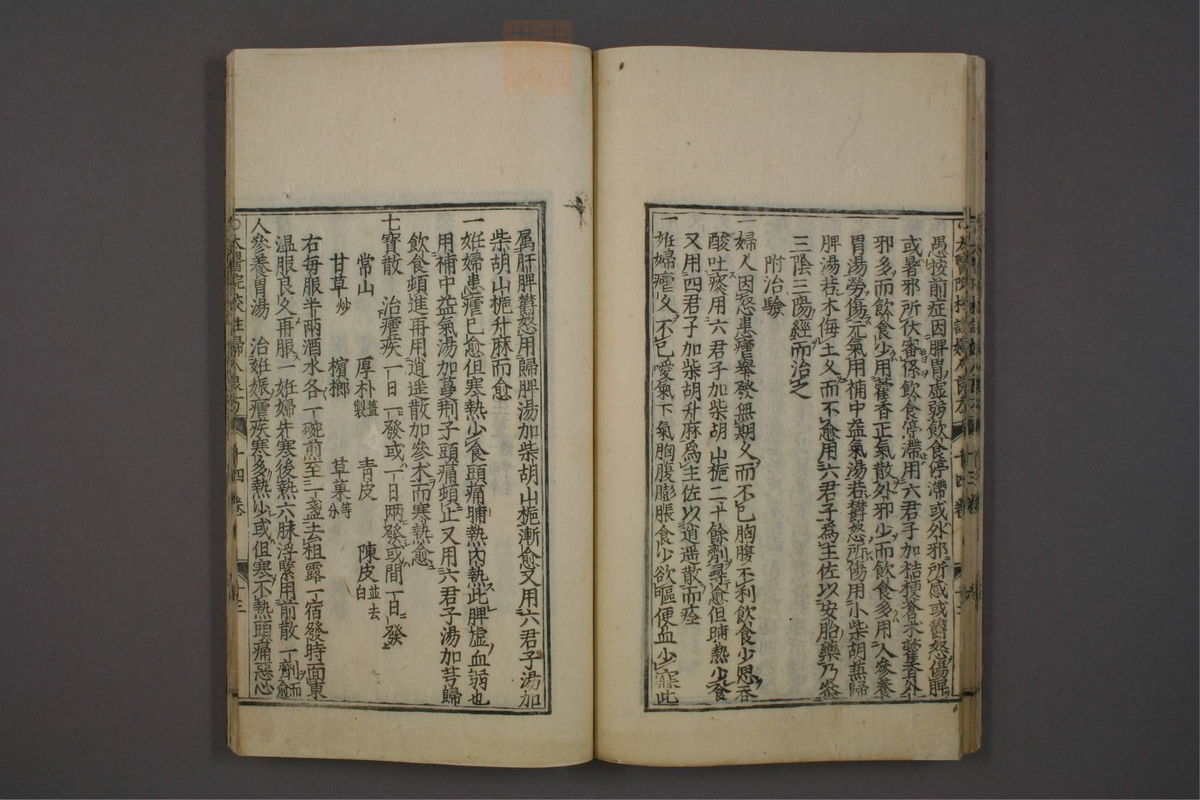 愚按前症因脾胃虛弱飲食停滯或外邪所感或鬱怒傷脾
或暑邪所伏審係飲食停滯用六君子加桔梗蒼朮藿香外
邪多而飲食少用藿香正氣散外邪少而飲食多用人參養
胃湯勞傷元氣用補中益氣湯若鬱怒所傷用小柴胡兼歸
脾湯若木侮土久而不愈用六君子為主佐以安胎藥乃參
三陰三陽經而治之
附治驗
一婦人因怒患瘧舉發無期久而不已胸腹不利飲食少思吞
酸吐痰用六君子加柴胡山梔二十餘劑尋愈但晡熱少食
又用四君子加柴胡升麻為主佐以逍遥散而痊
一妊婦瘧久不已噯氣下氣胸腹膨脹食少欲嘔便血少寐此
属肝脾鬱怒用歸脾湯加柴胡山梔漸愈又用六君子湯加
柴胡山梔升麻而愈
一妊婦患瘧已愈但寒熱少食頭痛晡熱內熱此脾虛血弱也
用補中益氣湯加蔓荆子頭痛頓止又用六君子湯加芎歸
飲食頓進再用逍遥散加參朮而寒熱愈
七寶散 治瘧疾一日一發或一日两發或間一日一發
常山 厚朴薑製 青皮 陳皮並去白
甘草炒 檳榔 草菓等分
右每服半兩酒水各一碗煎至一盞去粗露一宿發時面東
温服良久再服一妊婦先寒後熱六脉浮緊用前散一劑而愈
人參養胃湯 治妊娠瘧疾寒多熱少或但寒不熱頭痛惡心
○太醫院校註婦人良方 十四卷 十三